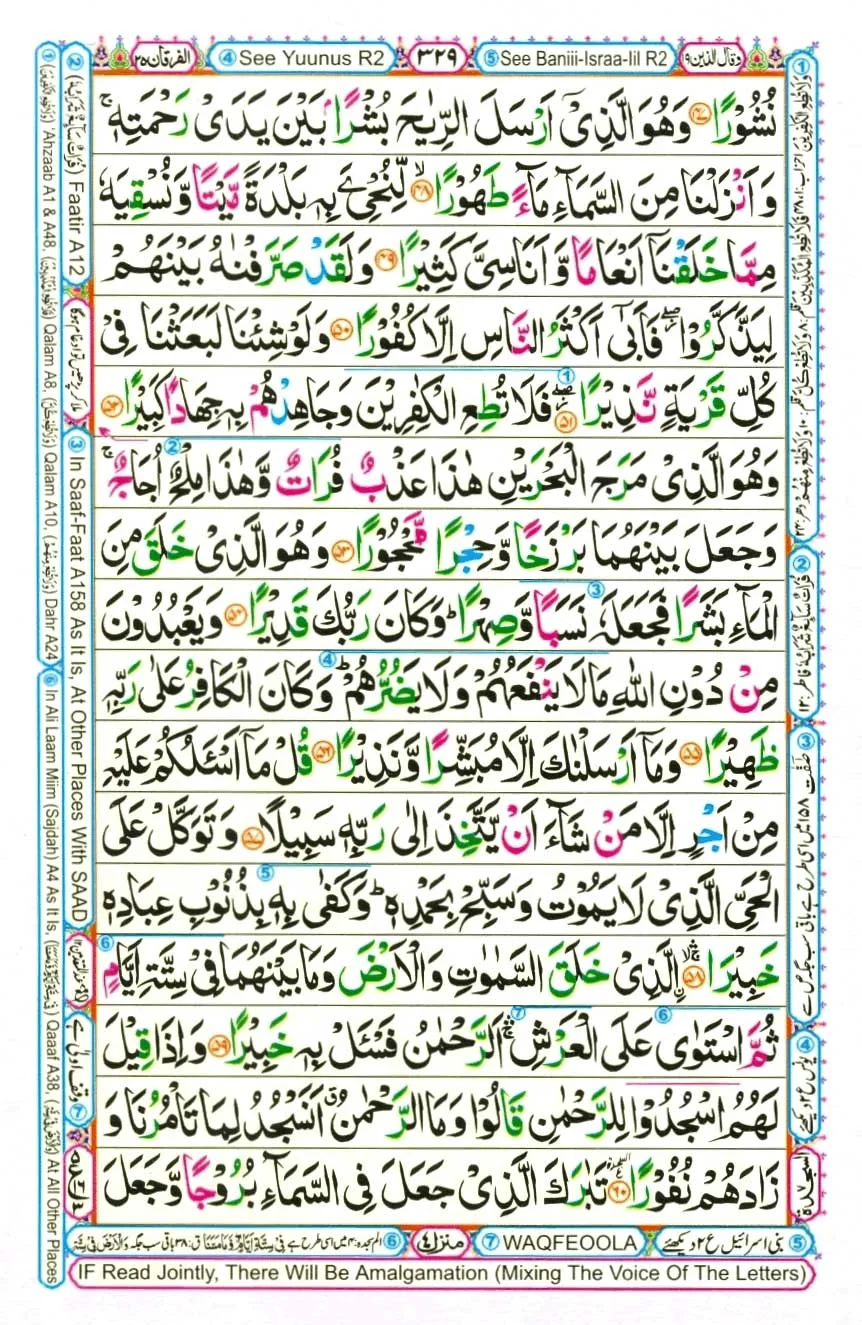 وقال الذين ١٩
⑤ See Baniii-Israa-Iil R2
٣٢٩
④ See Yuunus R2
الفرقان ٢٥
نُشُوْرًا ﴿۴۷﴾ وَهُوَ الَّذِیْۤ اَرْسَلَ الرِّیٰحَ بُشْرًۢا بَیْنَ یَدَیْ رَحْمَتِهٖ ۚ
وَاَنْزَلْنَا مِنَ السَّمَآءِ مَآءً طَهُوْرًا ﴿۴۸﴾ۙ لِّنُحْیِۦَ بِهٖ بَلْدَةً مَّیْتًا وَّنُسْقِیَهٗ
مِمَّا خَلَقْنَاۤ اَنْعَامًا وَّاَنَاسِیَّ كَثِیْرًا ﴿۴۹﴾ وَلَقَدْ صَرَّفْنٰهُ بَیْنَهُمْ
لِیَذَّكَّرُوْا ۖؗ فَاَبٰۤی اَكْثَرُ النَّاسِ اِلَّا كُفُوْرًا ﴿۵۰﴾ وَلَوْ شِئْنَا لَبَعَثْنَا فِیْ
كُلِّ قَرْیَةٍ نَّذِیْرًا ﴿۵۱﴾ۖؗ فَلَا تُطِعِ الْكٰفِرِیْنَ وَجَاهِدْهُمْ بِهٖ جِهَادًا كَبِیْرًا ﴿۵۲﴾
وَهُوَ الَّذِیْ مَرَجَ الْبَحْرَیْنِ هٰذَا عَذْبٌ فُرَاتٌ وَّهٰذَا مِلْحٌ اُجَاجٌ ۚ
وَجَعَلَ بَیْنَهُمَا بَرْزَخًا وَّحِجْرًا مَّحْجُوْرًا ﴿۵۳﴾ وَهُوَ الَّذِیْ خَلَقَ مِنَ
الْمَآءِ بَشَرًا فَجَعَلَهٗ نَسَبًا وَّصِهْرًا ؕ وَكَانَ رَبُّكَ قَدِیْرًا ﴿۵۴﴾ وَیَعْبُدُوْنَ
مِنْ دُوْنِ اللّٰهِ مَا لَا یَنْفَعُهُمْ وَلَا یَضُرُّهُمْ ؕ وَكَانَ الْكَافِرُ عَلٰی رَبِّهٖ
ظَهِیْرًا ﴿۵۵﴾ وَمَاۤ اَرْسَلْنٰكَ اِلَّا مُبَشِّرًا وَّنَذِیْرًا ﴿۵۶﴾ قُلْ مَاۤ اَسْـَٔلُكُمْ عَلَیْهِ
مِنْ اَجْرٍ اِلَّا مَنْ شَآءَ اَنْ یَّتَّخِذَ اِلٰی رَبِّهٖ سَبِیْلًا ﴿۵۷﴾ وَتَوَكَّلْ عَلَی
الْحَیِّ الَّذِیْ لَا یَمُوْتُ وَسَبِّحْ بِحَمْدِهٖ ؕ وَكَفٰی بِهٖ بِذُنُوْبِ عِبَادِهٖ
خَبِیْرَا ﴿۵۸﴾ ۚۛ ِۨالَّذِیْ خَلَقَ السَّمٰوٰتِ وَالْاَرْضَ وَمَا بَیْنَهُمَا فِیْ سِتَّةِ اَیَّامٍ
ثُمَّ اسْتَوٰی عَلَی الْعَرْشِ ۚۛ اَلرَّحْمٰنُ فَسْـَٔلْ بِهٖ خَبِیْرًا ﴿۵۹﴾ وَاِذَا قِیْلَ
لَهُمُ اسْجُدُوْا لِلرَّحْمٰنِ قَالُوْا وَمَا الرَّحْمٰنُ ۗ اَنَسْجُدُ لِمَا تَاْمُرُنَا وَ
زَادَهُمْ نُفُوْرًا ﴿۶۰﴾ تَبٰرَكَ الَّذِیْ جَعَلَ فِی السَّمَآءِ بُرُوْجًا وَّجَعَلَ
② فاطر ١٢
③ صٰفّٰت ١٥٨ میں اسی طرح ہے باقی سب جگہ ص سے
④ یونس ع ٢ دیکھئے
السجدة
② Faatir A12
③ In Saaf-Faat A158 As It Is, At Other Places With SAAD
⑦ وقف اولیٰ ہے
① 'Ahzaab A1 & A48, Qalam A8, Qalam A10, Dahr A24
⑥ In Ali Laam Miim (Sajdah) A4 As It Is, Qaaaf A38 At All Other Places
⑤ بنی اسرائیل ع ٢ دیکھئے
⑦ WAQFEOOLA
منزل ٤
IF Read Jointly, There Will Be Amalgamation (Mixing The Voice Of The Letters)